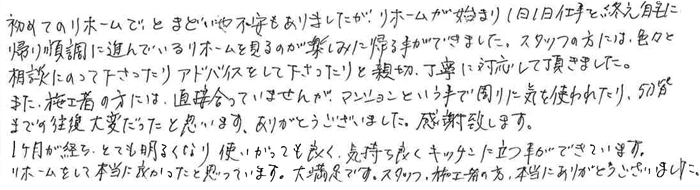 初めてのリホームでとまどいや不安もありましたが、リホームが始まり1日1日仕事を終え自宅に
帰り順調に進んでいるリホームを見るのが楽しみに帰る事ができました。スタッフの方には、色々と
相談にのって下さったりアドバイスをして下さったりと親切、丁寧に対応して頂きました。
また、施工者の方には、直接会っていませんが、マンションという事で周りに気を使われたり、
までの往復大変だったと思います、ありがとうございました。感謝致します。
1ヶ月が経ち、とても明るくなり使いがっても良く、気持ち良くキッチンに立つ事ができています。
リホームをして本当に良かったと思っています。大満足です。スタッフ、施工者の方、本当にありがとうございました。